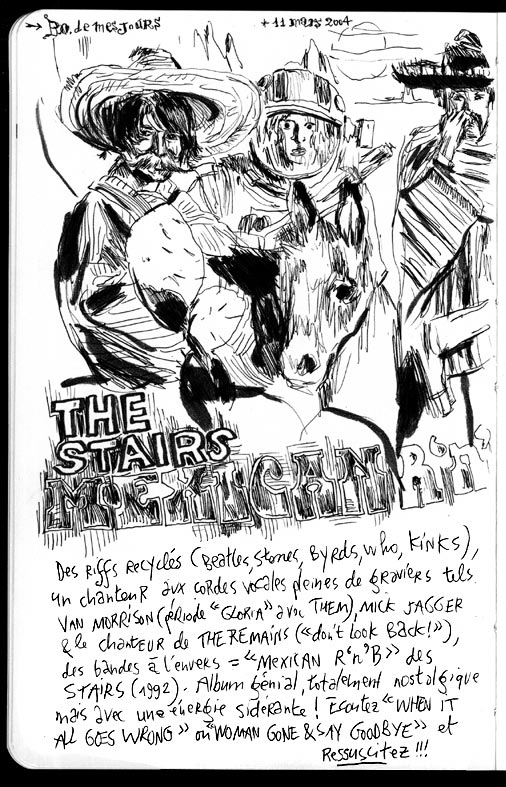 → B.O. de mes jours
+ 11 mars 2004
THE
STAIRS
MEXICAN R'n'
Des Riffs Recyclés (Beatles, stones, Byrds, who, Kinks),
un chanteuR aux cordes vocales pleines de graviers tels
VAN MORRISON (période "GLORIA" avec THEM), MICK JAGGER
& le chanteur de THE REMAINS («don't Look Back!»),
des bandes à l'envers = «MEXICAN R'n'B» des
STAIRS (1992). Album génial, totalement nostalgique
mais avec une énergie siderante! Ecoutez «WHEN IT
ALL GOES WRONG» ou "WOMAN GONE & SAY GOODBYE» et
Ressuscitez !!!